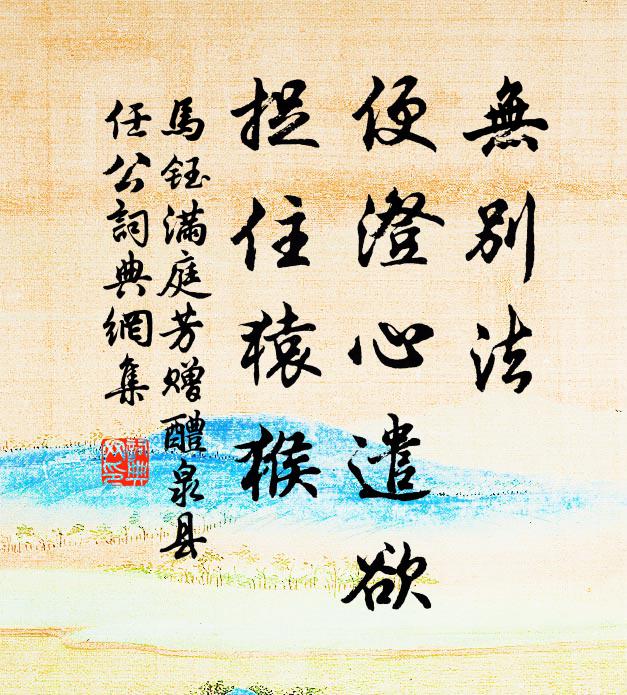 無別法
便澄心遣欲
捉住猿猴
馬鈺满庭芳赠醴泉县
任公詞典網集